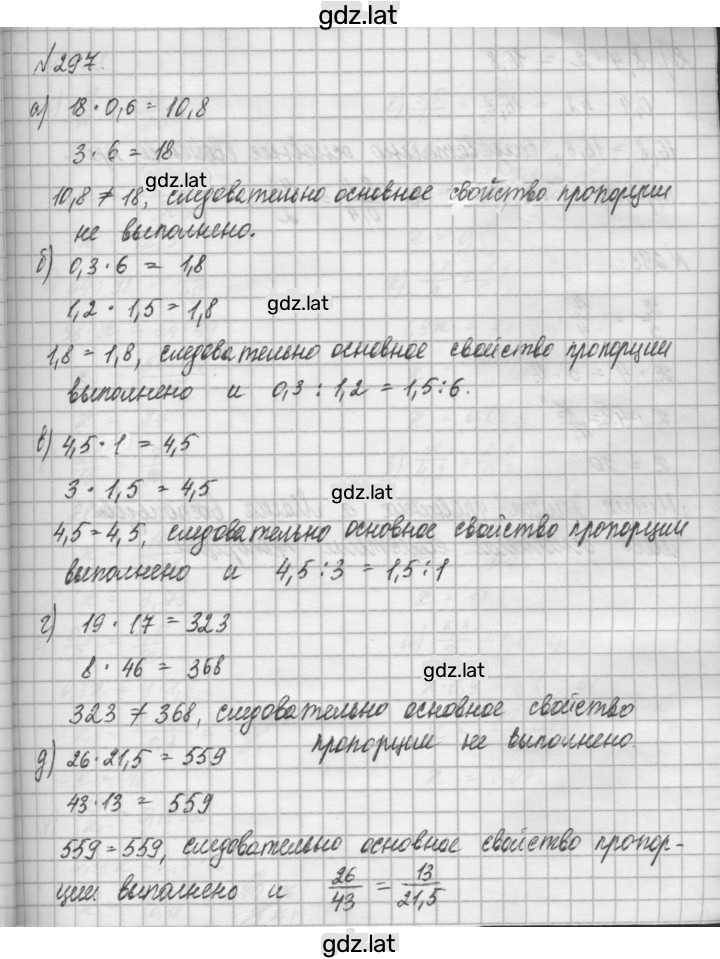 gdz.lat
№297.
а) 18·0,6 = 10,8
3·6 = 18
gdz.lat
10,8 ≠ 18, следовательно основное свойство пропорции
не выполнено.
б) 0,3·6 = 1,8
1,2 · 1,5 = 1,8
gdz.lat
1,8 = 1,8, следовательно основное свойство пропорции
выполнено и 0,3 : 1,2 = 1,5:6.
в) 4,5·1 = 4,5
3 · 1,5 = 4,5
gdz.lat
4,5=4,5, следовательно основное свойство пропорции
выполнено и 4,5:3 = 1,5:1
г) 19 · 17 = 323
8 · 46 = 368
gdz.lat
323 ≠ 368, следовательно основное свойство
пропорции не выполнено.
д) 26·21,5 = 559
43·13 = 559
559=559, следовательно основное свойство пропор-
ции выполнено и 26/43 = 13/21,5
gdz.lat